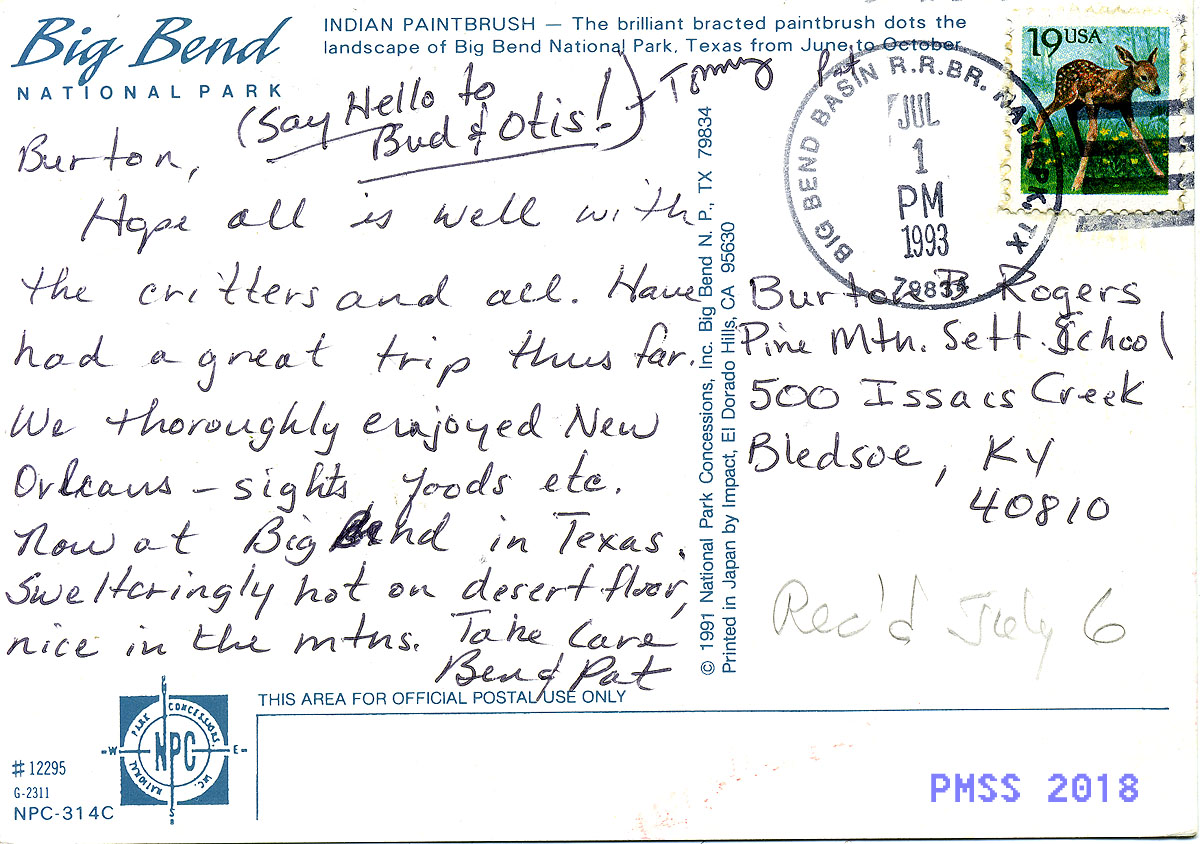 Big Bend
NATIONAL PARK
INDIAN PAINTBRUSH — The brilliant bracted paintbrush dots the
landscape of Big Bend National Park, Texas from June to October.
(Say Hello to
Bud & Otis!) - Tommy Pat
Burton,
Hope all is well with
the critters and all. Have
had a great trip thus far.
We thoroughly enjoyed New
Orleans - sights, foods etc.
Now at Big Bend in Texas.
Sweltcringly hot on desert floor,
nice in the mtns. Take Care
Ben & Pat
© 1991 National Park Concessions, Inc. Big Bend N. P., TX 79834
Printed in Japan by Impact, El Dorado Hills, CA 95630
19 USA
BIG BEND BASIN R.R.BR. NAT. PK. TX
JUL
1
PM
1993
79834
Burton B Rogers
Pine Mtn. Sett. School
500 Issacs Creek
Bledsoe, KY
40810
Rec'd July 6
THIS AREA FOR OFFICIAL POSTAL USE ONLY
NATIONAL PARK CONCESSIONS, INC.
N
W NPC E
S
#12295
G-2311
NPC-314C
PMSS 2018